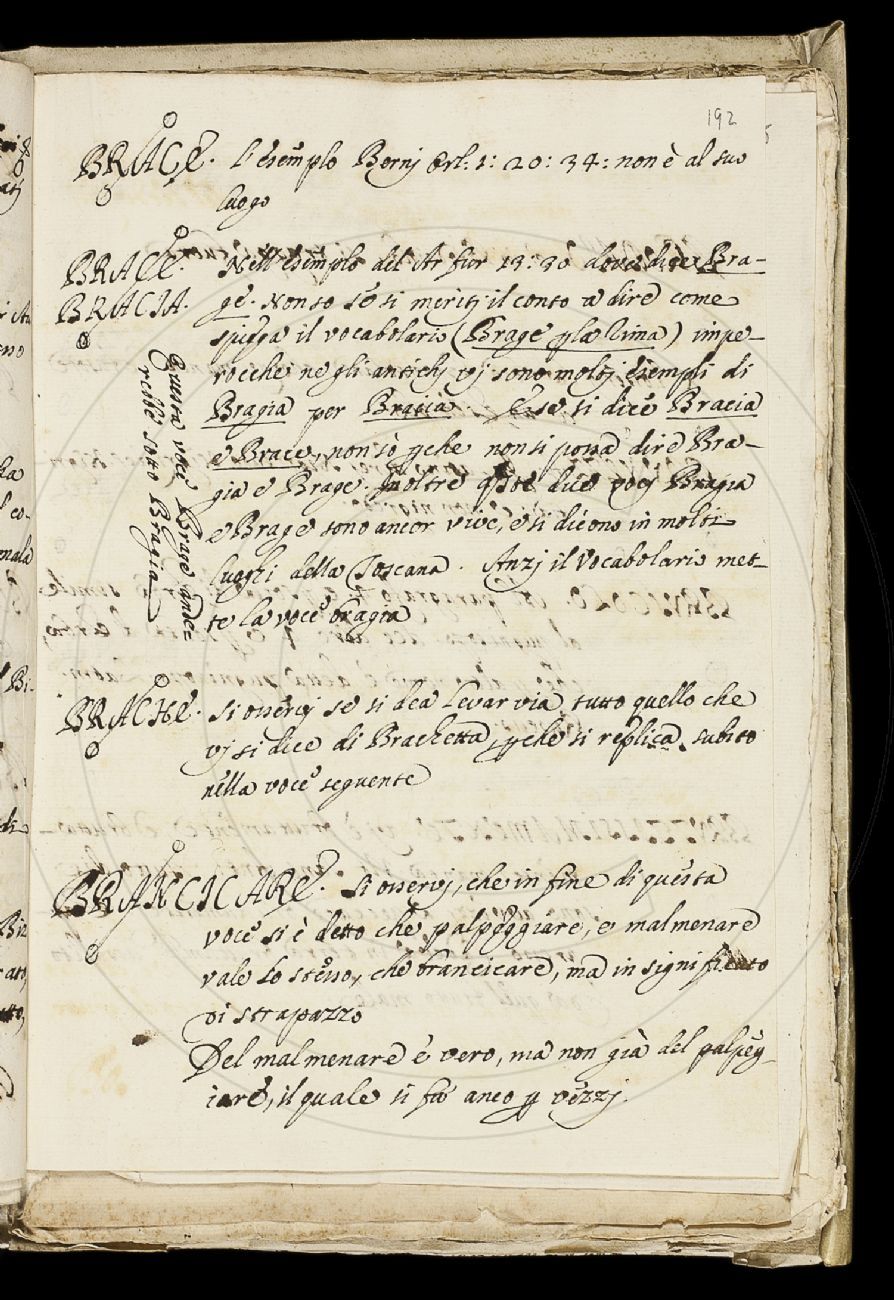 192
BRACE. L'esemplo Bernj Orl: 1: 20: 34: non è al suo
luogo
BRACE. Nell'esemplo del Ar fur 13: 30 dove dice Bra-
BRACIA. ge. Non so se si meritj il conto a dire come
spiega il vocabolario (Brage p la rima) impe-
rocche negli antichj vj sono moltj esempli di
Bragia per Bracia. E se si dice Bracia
e Brace, non sò pche non si possa dire Bra-
gia e Brage. Inoltre qste due vocj Bragia
e Brage sono ancor vive, e si dicono in molti
luoghi della Toscana. Anzj il Vocabolario met-
te la voce bragia
Questa voce Brage ande=
rebbe sotto Bragia
BRACHE. Si osservj se si dea levar via tutto quello che
vj si dice di Brachetta, pche si replica subito
nella voce seguente
BRANCICARE. Si osservj, che in fine di questa
voce si è detto che palpeggiare, e malmenare
vale lo stesso, che brancicare, ma in significato
di strapazzo
Del malmenare è vero, ma non già del palpeg-
iare, il quale si fa anco p vezzj.